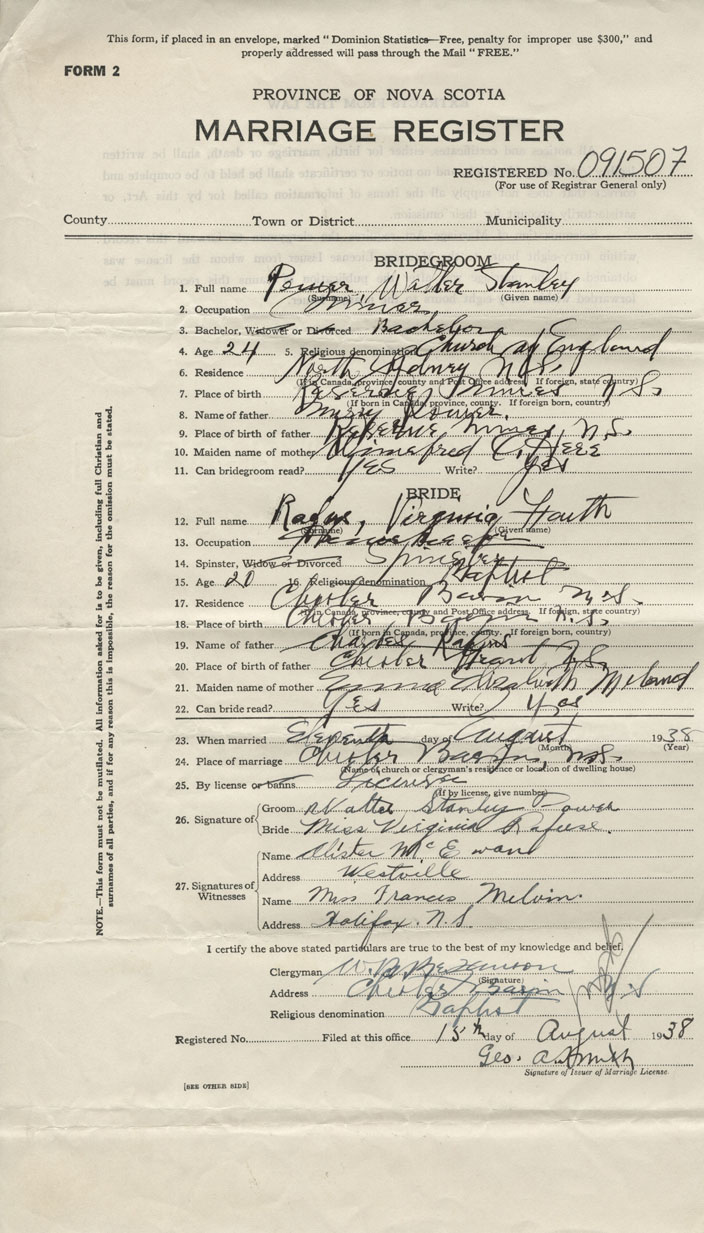 This form, if placed in an envelope, marked "Dominion Statistics—Free, penalty for improper use $300," and
properly addressed will pass through the Mail "FREE."
FORM 2
PROVINCE OF NOVA SCOTIA
MARRIAGE REGISTER
REGISTERED No. 091507
(For use of Registrar General only)
County Town or District Municipality
BRIDEGROOM
1. Full name Power, Walter Stanley
(Surname) (Given name)
2. Occupation Miner
3. Bachelor, Widower or Divorced Bachelor
4. Age 24 5. Religious denomination Church of England
6. Residence North Sydney N.S.
(If in Canada, province, county and Post Office address. If foreign, state country)
7. Place of birth Reserve Mines N.S.
(If born in Canada, province, county. If foreign born, country)
8. Name of father Power
9. Place of father Reserve Mines, N.S.
10. Maiden name of mother
11. Can bridegroom read? Yes Write? Yes
BRIDE
12. Full name Virginia Faith
(Surname) (Given name)
13. Occupation
14. Spinster, Widow or Divorced Spinster
15. Age 20 16. Religious denomination Baptist
17. Residence Chester Basin N.S.
(If in Canada, province, county and Post Office address. If foreign, state country)
18. Place of birth Chester Basin N.S.
(If born in Canada, province, county. If foreign born, country)
19. Name of father Charles
20. Place of birth of father Chester Grant N.S.
21. Maiden name of mother Elizabeth
22. Can bride read? Yes Write? Yes
23. When married Eleventh day of August 1938
(Month) (Year)
24. Place of marriage Chester Basin, N.S.
(Name of church or clergyman's residence or location of dwelling house)
25. By license or banns License
(If by license, give number)
26. Signature of
Groom Walter Stanley Power
Bride Miss Virginia Rafuse.
27. Signatures of Witnesses
Name Alister McEwan
Address Westville
Name Miss Frances Melvin
Address Halifax. N.S.
I certify the above stated particulars are true to the best of my knowledge and belief.
Clergyman W.B. Bezanson
(Signature)
Address Chester Basin N S
Religious denomination Baptist
Registered No. Filed at this office 15th day of August 1938
Geo. A. Smith
Signature of Issuer of Marriage License
[SEE OTHER SIDE]
NOTE.—This form must not be mutilated. All information asked for is to be given, including full Christian and
surnames of all parties, and if for any reason this is impossible, the reason for the omission must be stated.